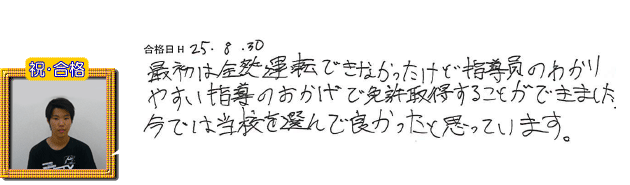 祝・合格
合格日 H 25.8.30
最初は全然運転できなかったけど指導員のわかり
やすい指導のおかげで免許取得することができました
今では当校を選んで良かったと思っています。